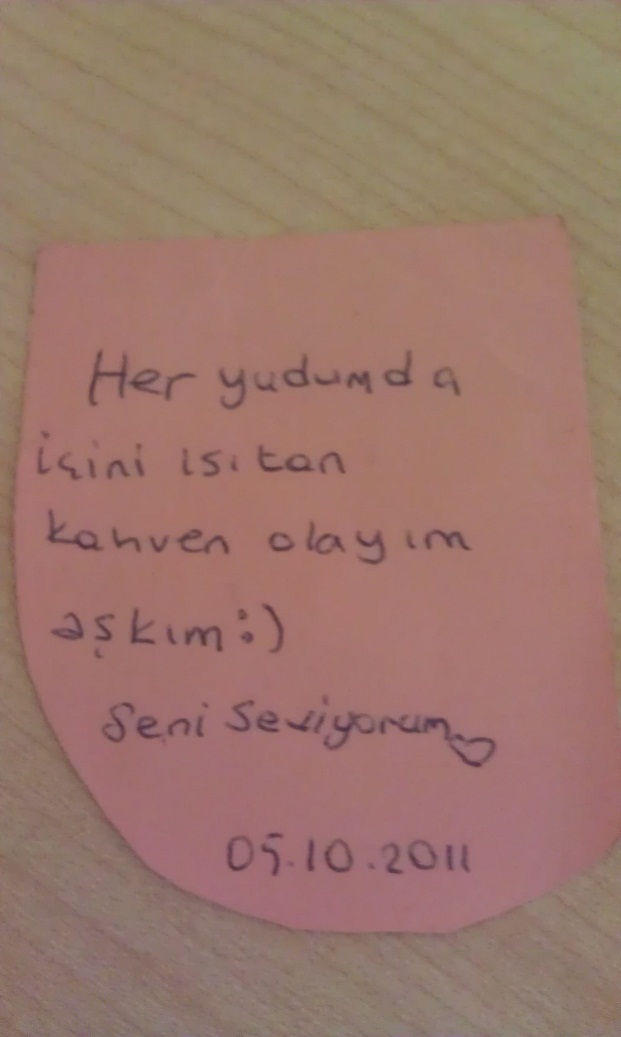 Her yudumda
içini ısıtan
kahven olayım
aşkım:)
Seni Seviyorum
05.10.2011